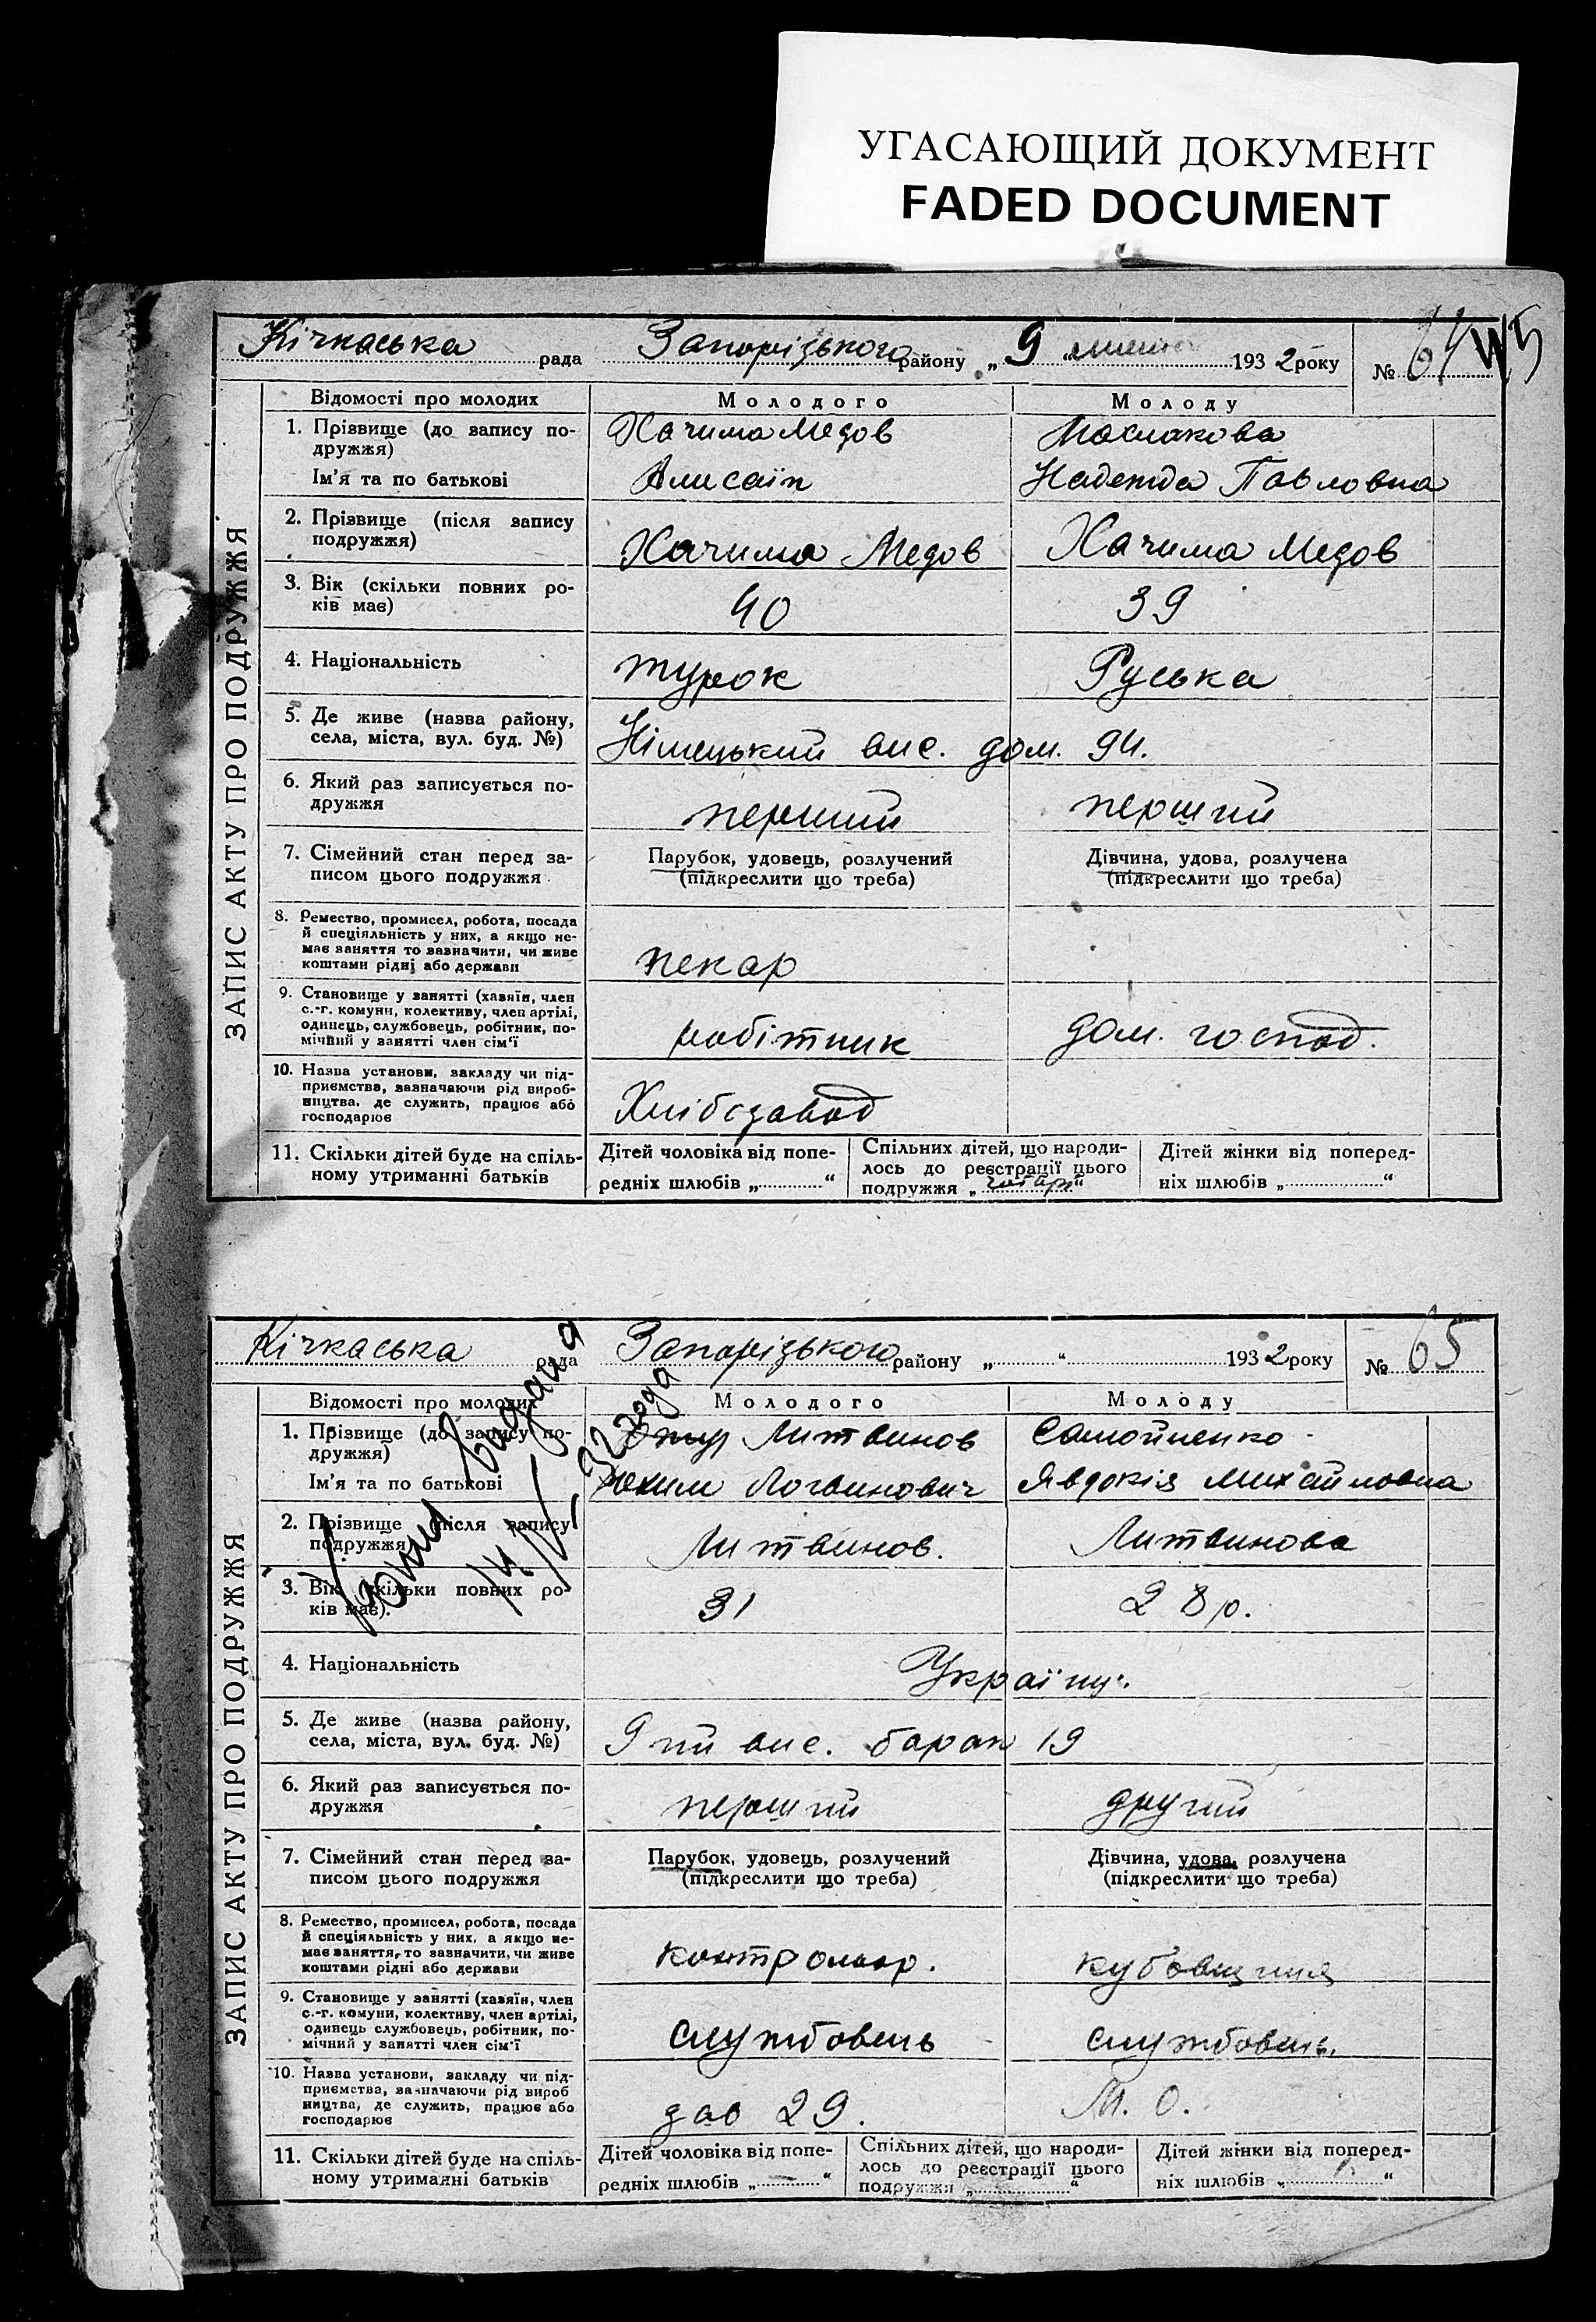 УГАСАЮЩИЙ ДОКУМЕНТ
FADED DOCUMENT
Кічкаська рада Запорізького району „ 9 “ 193 2 року № 64
ЗАПИС АКТУ ПРО ПОДРУЖЖЯ
Відомості про молодих Молодого Молоду
1. Прізвище (до запису по-
дружжя) Хачима Медов
Ім'я та по батькові Алисаїп Надежда Павловна
2. Прізвище (після запису
подружжя) Хачима Медов Хачима Медов
3. Вік (скільки повних ро-
ків має) 40 39
4. Національність турок Руська
5. Де живе (назва району,
села, міста, вул. буд. №) Німецький вис. дом. 94.
6. Який раз записується по-
дружжя перший перший
7. Сімейний стан перед за-
писом цього подружжя
Парубок, удовець, розлучений
(підкреслити що треба)
Дівчина, удова, розлучена
(підкреслити що треба)
8. Ремество, промисел, робота, посада
й спеціяльність у них, а якщо не-
має заняття то зазначити, чи живе
коштами рідні або держави пекар
9. Становище у занятті (хазяїн, член
с.-г. комуни, колективу, член артілі,
одинець, службовець, робітник, по-
мічний у занятті член сім'ї робітник дом. господ.
10. Назва установи, закладу чи під-
приємства, зазначаючи рід вироб-
ництва, де служить, працює або
господарює Хлібозавод
11. Скільки дітей буде на спіль-
ному утриманні батьків
Дітей чоловіка від попе-
редніх шлюбів „ “
Спільних дітей, що народи-
лось до реєстрації цього
подружжя „ “
Дітей жінки від поперед-
ніх шлюбів „ “
Кічкаська рада Запорізького району „ “ 193 2 року № 65
ЗАПИС АКТУ ПРО ПОДРУЖЖЯ
Копия видана
32 года
Відомості про молодих Молодого Молоду
1. Прізвище (до запису по-
дружжя) Литвинов Самойленко
Ім'я та по батькові Юхим Логвинович Явдокія Михайловна
2. Прізвище (після запису
подружжя) Литвинов. Литвинова
3. Вік (скільки повних ро-
ків має). 31 28 р.
4. Національність Україну.
5. Де живе (назва району,
села, міста, вул. буд. №) 9 ий вис. барак 19
6. Який раз записується по-
дружжя перший другий
7. Сімейний стан перед за-
писом цього подружжя
Парубок, удовець, розлучений
(підкреслити що треба)
Дівчина, удова, розлучена
(підкреслити що треба)
8. Ремество, промисел, робота, посада
й спеціяльність у них, а якщо не-
має заняття, то зазначити, чи живе
коштами рідні або держави контрольор. кубовщиця
9. Становище у занятті (хазяїн, член
с.-г. комуни, колективу, член артілі,
одинець службовець, робітник, по-
мічний у занятті член сім'ї службовець службовець.
10. Назва установи, закладу чи під-
приємства, зазначаючи рід вироб
ництва, де служить, працює або
господарює зав 29. М. О.
11. Скільки дітей буде на спіль-
ному утриманні батьків
Дітей чоловіка від попе-
редніх шлюбів „ “
Спільних дітей, що народи-
лось до реєстрації цього
подружжя „ “
Дітей жінки від поперед-
ніх шлюбів „ “